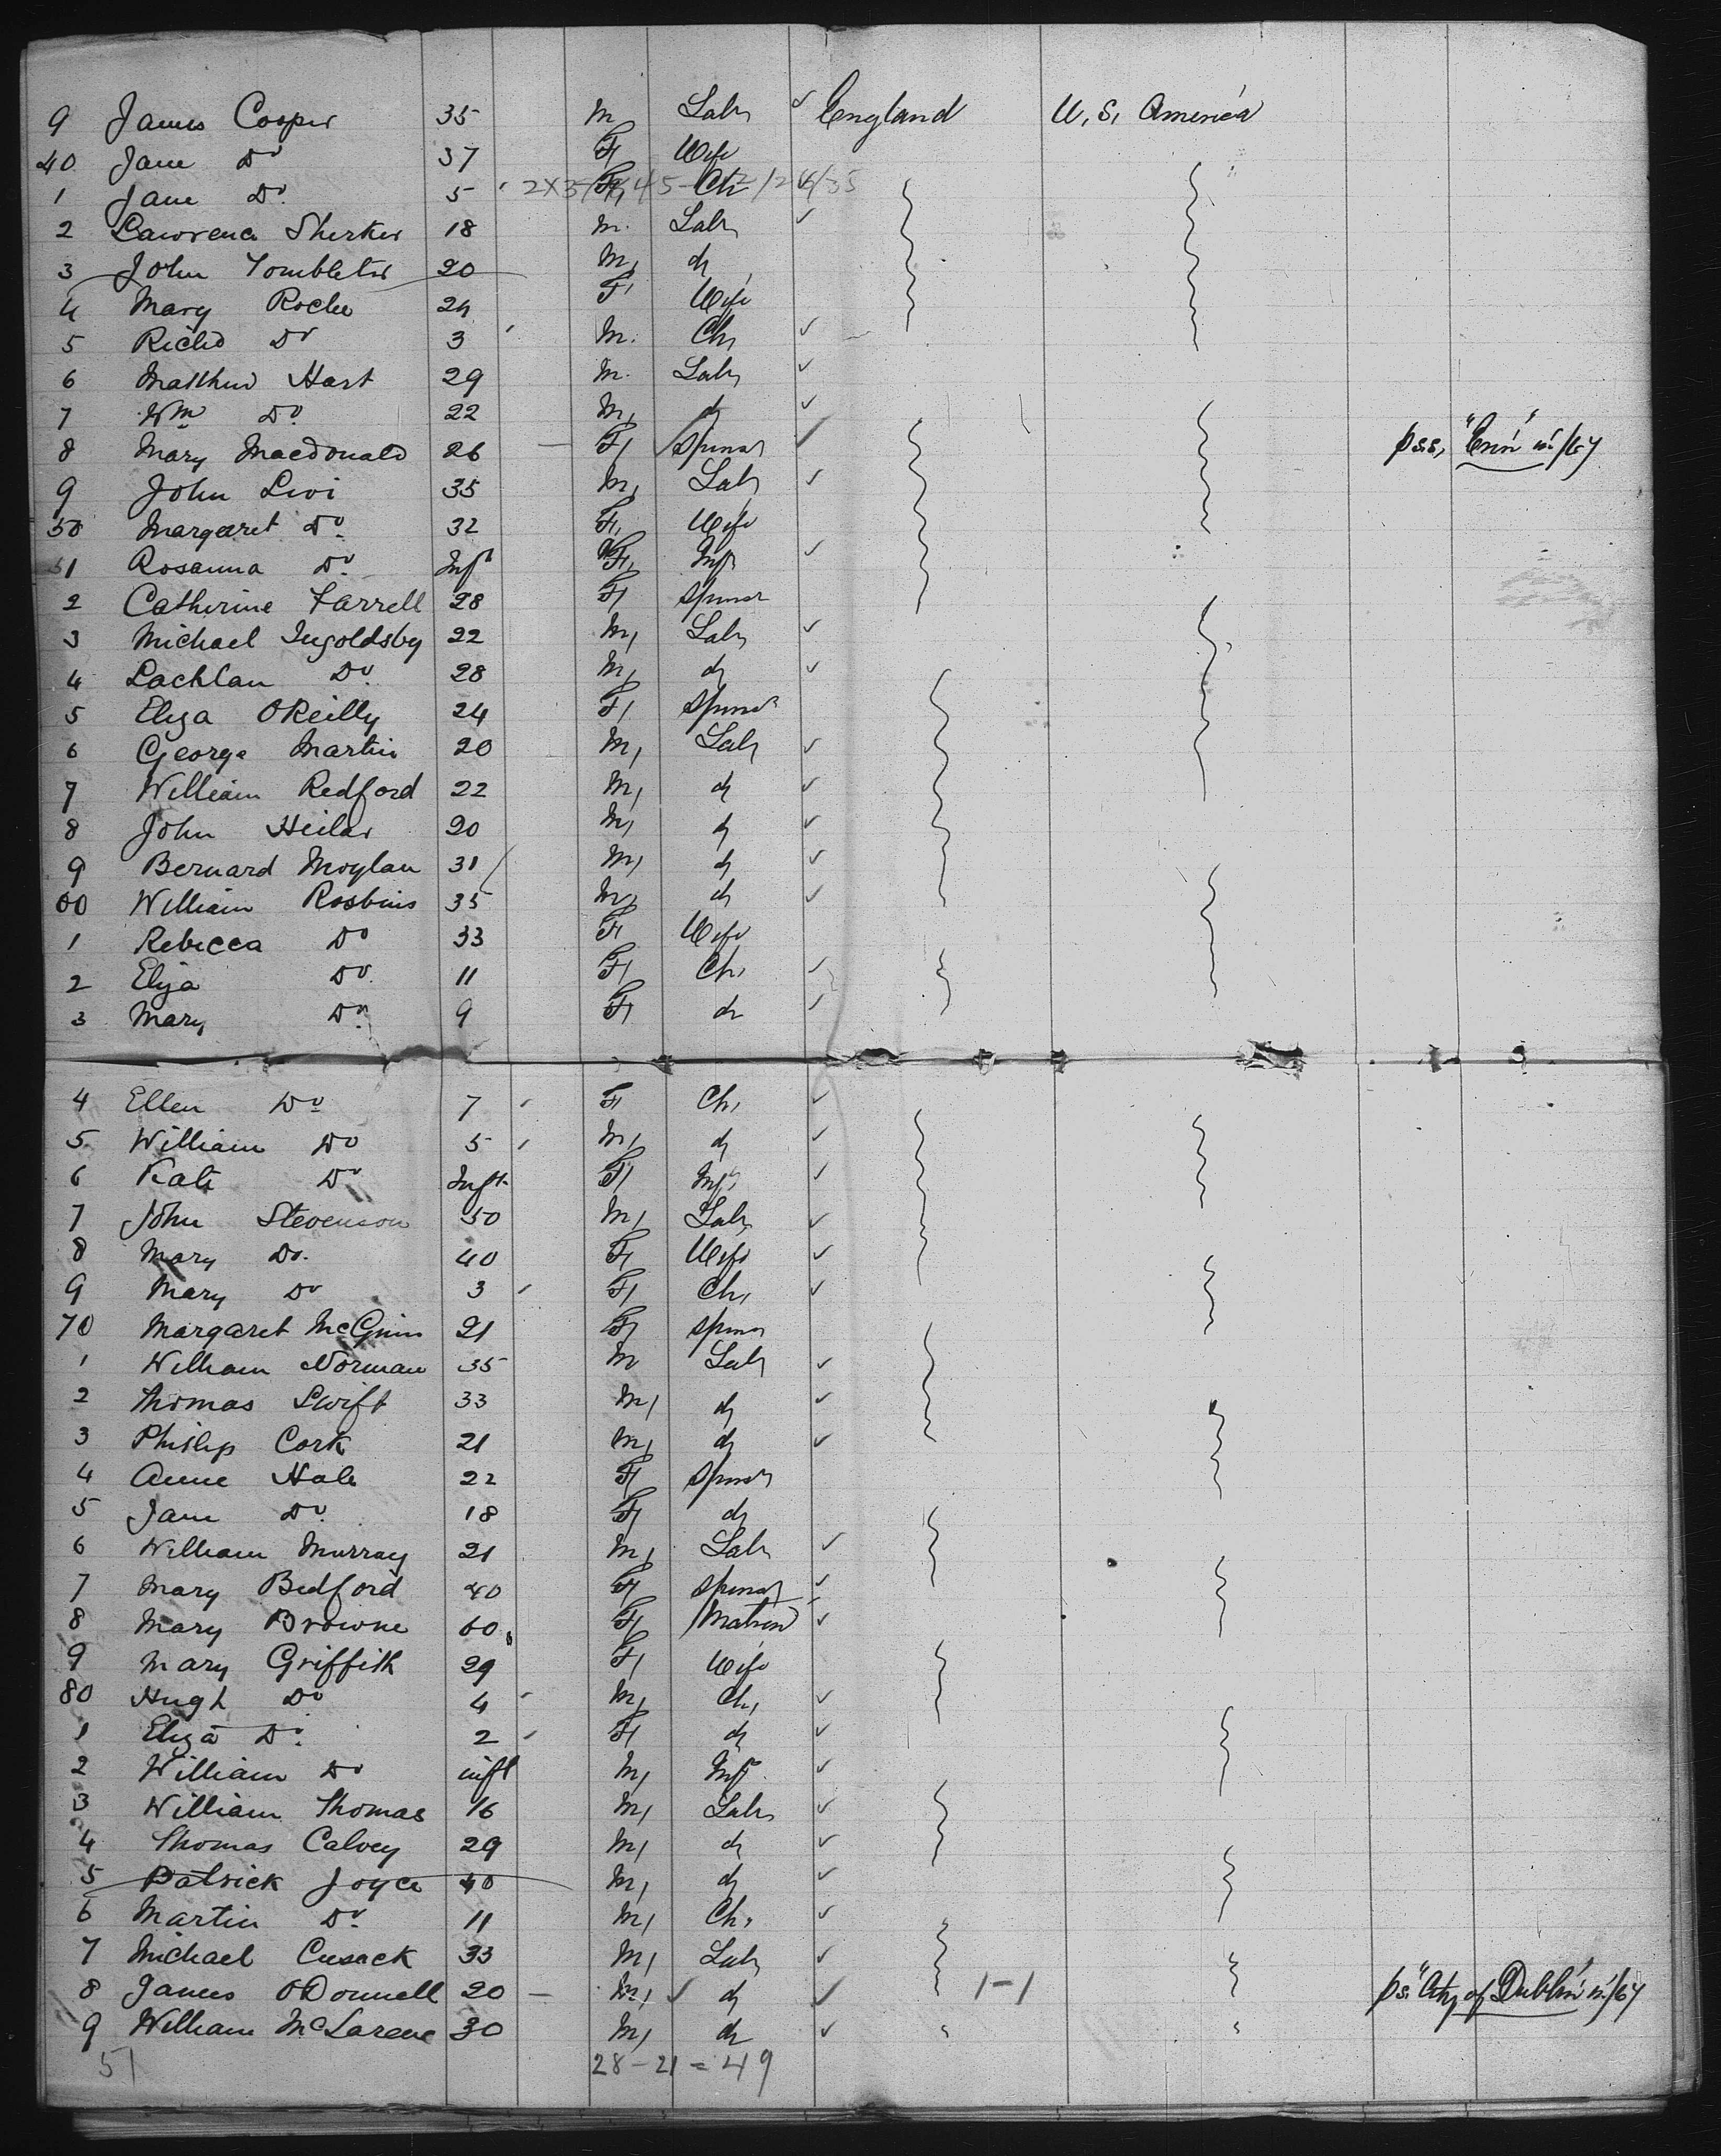 9 James Cooper 35 M Labr ✓ England U.S. America
40 Jane Do 37 F Wife
1 Jane Do 5 F Ch
2 Lawrence Sherker 18 M. Labr ✓
3 John Tombleter 20 M, do
4 Mary Roche 24 F Wife
5 Richd Do 3 M. Ch, ✓
6 Matthew Hart 29 M. Labr ✓
7 Wm Do 22 M, do ✓
8 Mary Macdonald 26 F Spinsr ✓ pss, "Erin" n./67
9 John Levi 35 M, Labr ✓
50 Margaret Do 32 F, Wife
51 Rosanna Do Inft F, Inft ✓
2 Catherine Farrell 28 F Spinsr
3 Michael Ingoldsby 22 M, Labr ✓
4 Lachlan Do 28 M, do ✓
5 Eliza OReilly 24 F Spinsr
6 George Martin 20 M, Labr ✓
7 William Redford 22 M, do ✓
8 John Heilar 20 M, do ✓
9 Bernard Moylan 31 M, do ✓
60 William Rosbins 35 M, do ✓
1 Rebecca Do 33 F Wife
2 Eliza Do 11 F Ch, ✓
3 Mary Do 9 F do ✓
4 Ellen Do 7 F Ch, ✓
5 William Do 5 M, do ✓
6 Kate Do Inft F Inft ✓
7 John Stevenson 50 M, Labr ✓
8 Mary Do. 40 F Wife ✓
9 Mary Do 3 F Ch, ✓
70 Margaret McGinn 21 F Spinsr
1 William Norman 35 M Labr ✓
2 Thomas Swift 33 M, do ✓
3 Philip Cork 21 M, do ✓
4 Anne Hale 22 F Spinsr
5 Jane Do 18 F do
6 William Murray 21 M, Labr ✓
7 Mary Bedford 40 F Spinsr ✓
8 Mary Browne 60 F Matron ✓
9 Mary Griffith 29 F Wife
80 Hugh Do 4 M, Ch, ✓
1 Eliza Do 2 F do ✓
2 William Do inft M, Inft ✓
3 William Thomas 16 M, Labr ✓
4 Thomas Calvey 29 M, do ✓
5 Patrick Joyce 40 M, do ✓
6 Martin Do 11 M, Ch, ✓
7 Michael Cusack 33 M, Labr ✓
8 James ODonnell 20 M, ✓ do ✓ 1-1 ps. "City of Dublin" n./67
9 William McLarene 30 M, do ✓
51 28-21=49